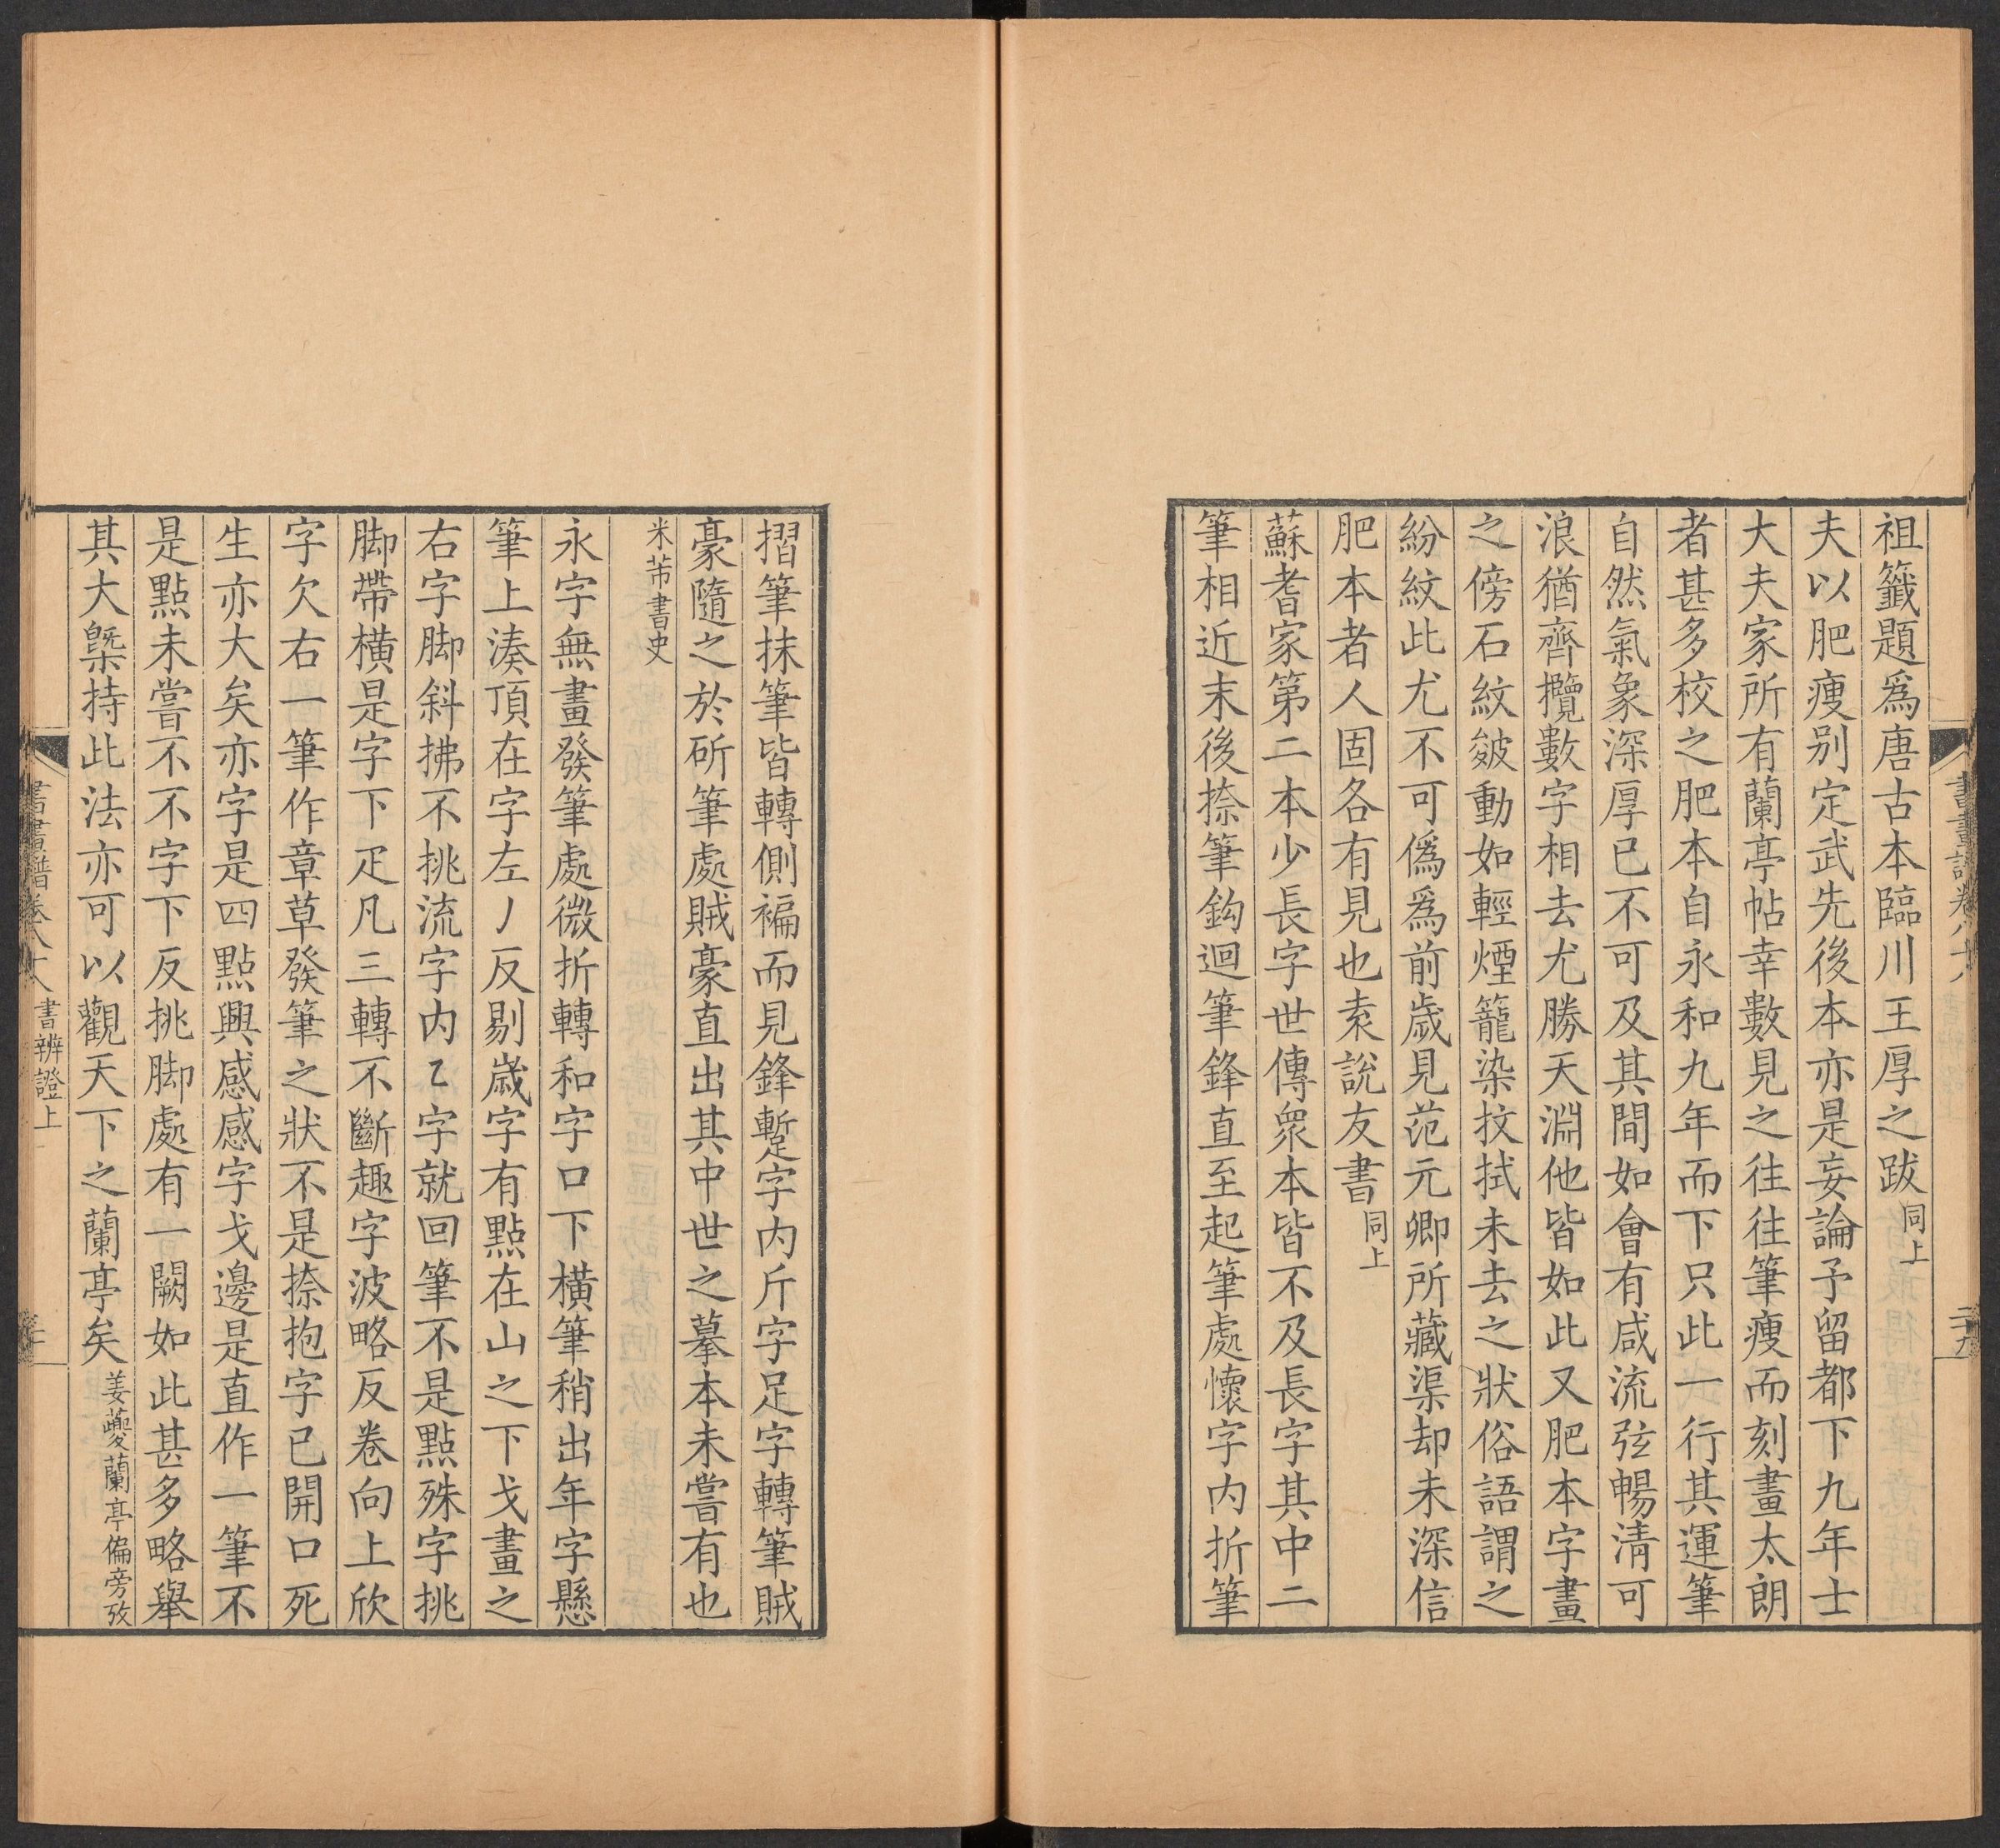 祖籤題爲唐古本臨川王厚之跋同上
夫以肥瘦别定武先後本亦是妄論予留都下九年士
大夫家所有蘭亭帖幸數見之往往筆瘦而刻畫太朗
者甚多校之肥本自永和九年而下只此一行其運筆
自然氣象深厚已不可及其間如會有咸流弦暢淸可
浪猶齊攬數字相去尤勝天淵他皆如此又肥本字畫
之傍石紋皴動如輕煙籠染抆拭未去之狀俗語謂之
紛紋此尤不可僞爲前歲見范元卿所藏渠却未深信
肥本者人固各有見也袁說友書同上
蘇耆家第二本少長字世傳衆本皆不及長字其中二
筆相近末後捺筆鈎迴筆鋒直至起筆處懷字内折筆
摺筆抹筆皆轉側褊而見鋒蹔字内斤字足字轉筆賊
豪隨之於斫筆處賊豪直出其中世之摹本未嘗有也
米芾書史
永字無畫發筆處微折轉和字口下横筆稍出年字懸
筆上湊頂在字左丿反剔歲字有點在山之下戈畫之
右字脚斜拂不挑流字内㇈字就回筆不是點殊字挑
脚帶横是字下疋凡三轉不斷趣字波略反卷向上欣
字欠右一筆作章草發筆之狀不是捺抱字已開口死
生亦大矣亦字是四點興感感字戈邊是直作一筆不
是點未嘗不不字下反挑脚處有一闕如此甚多略舉
其大槩持此法亦可以觀天下之蘭亭矣姜夔蘭亭偏旁攷
書畫譜卷八十八 書辨證上